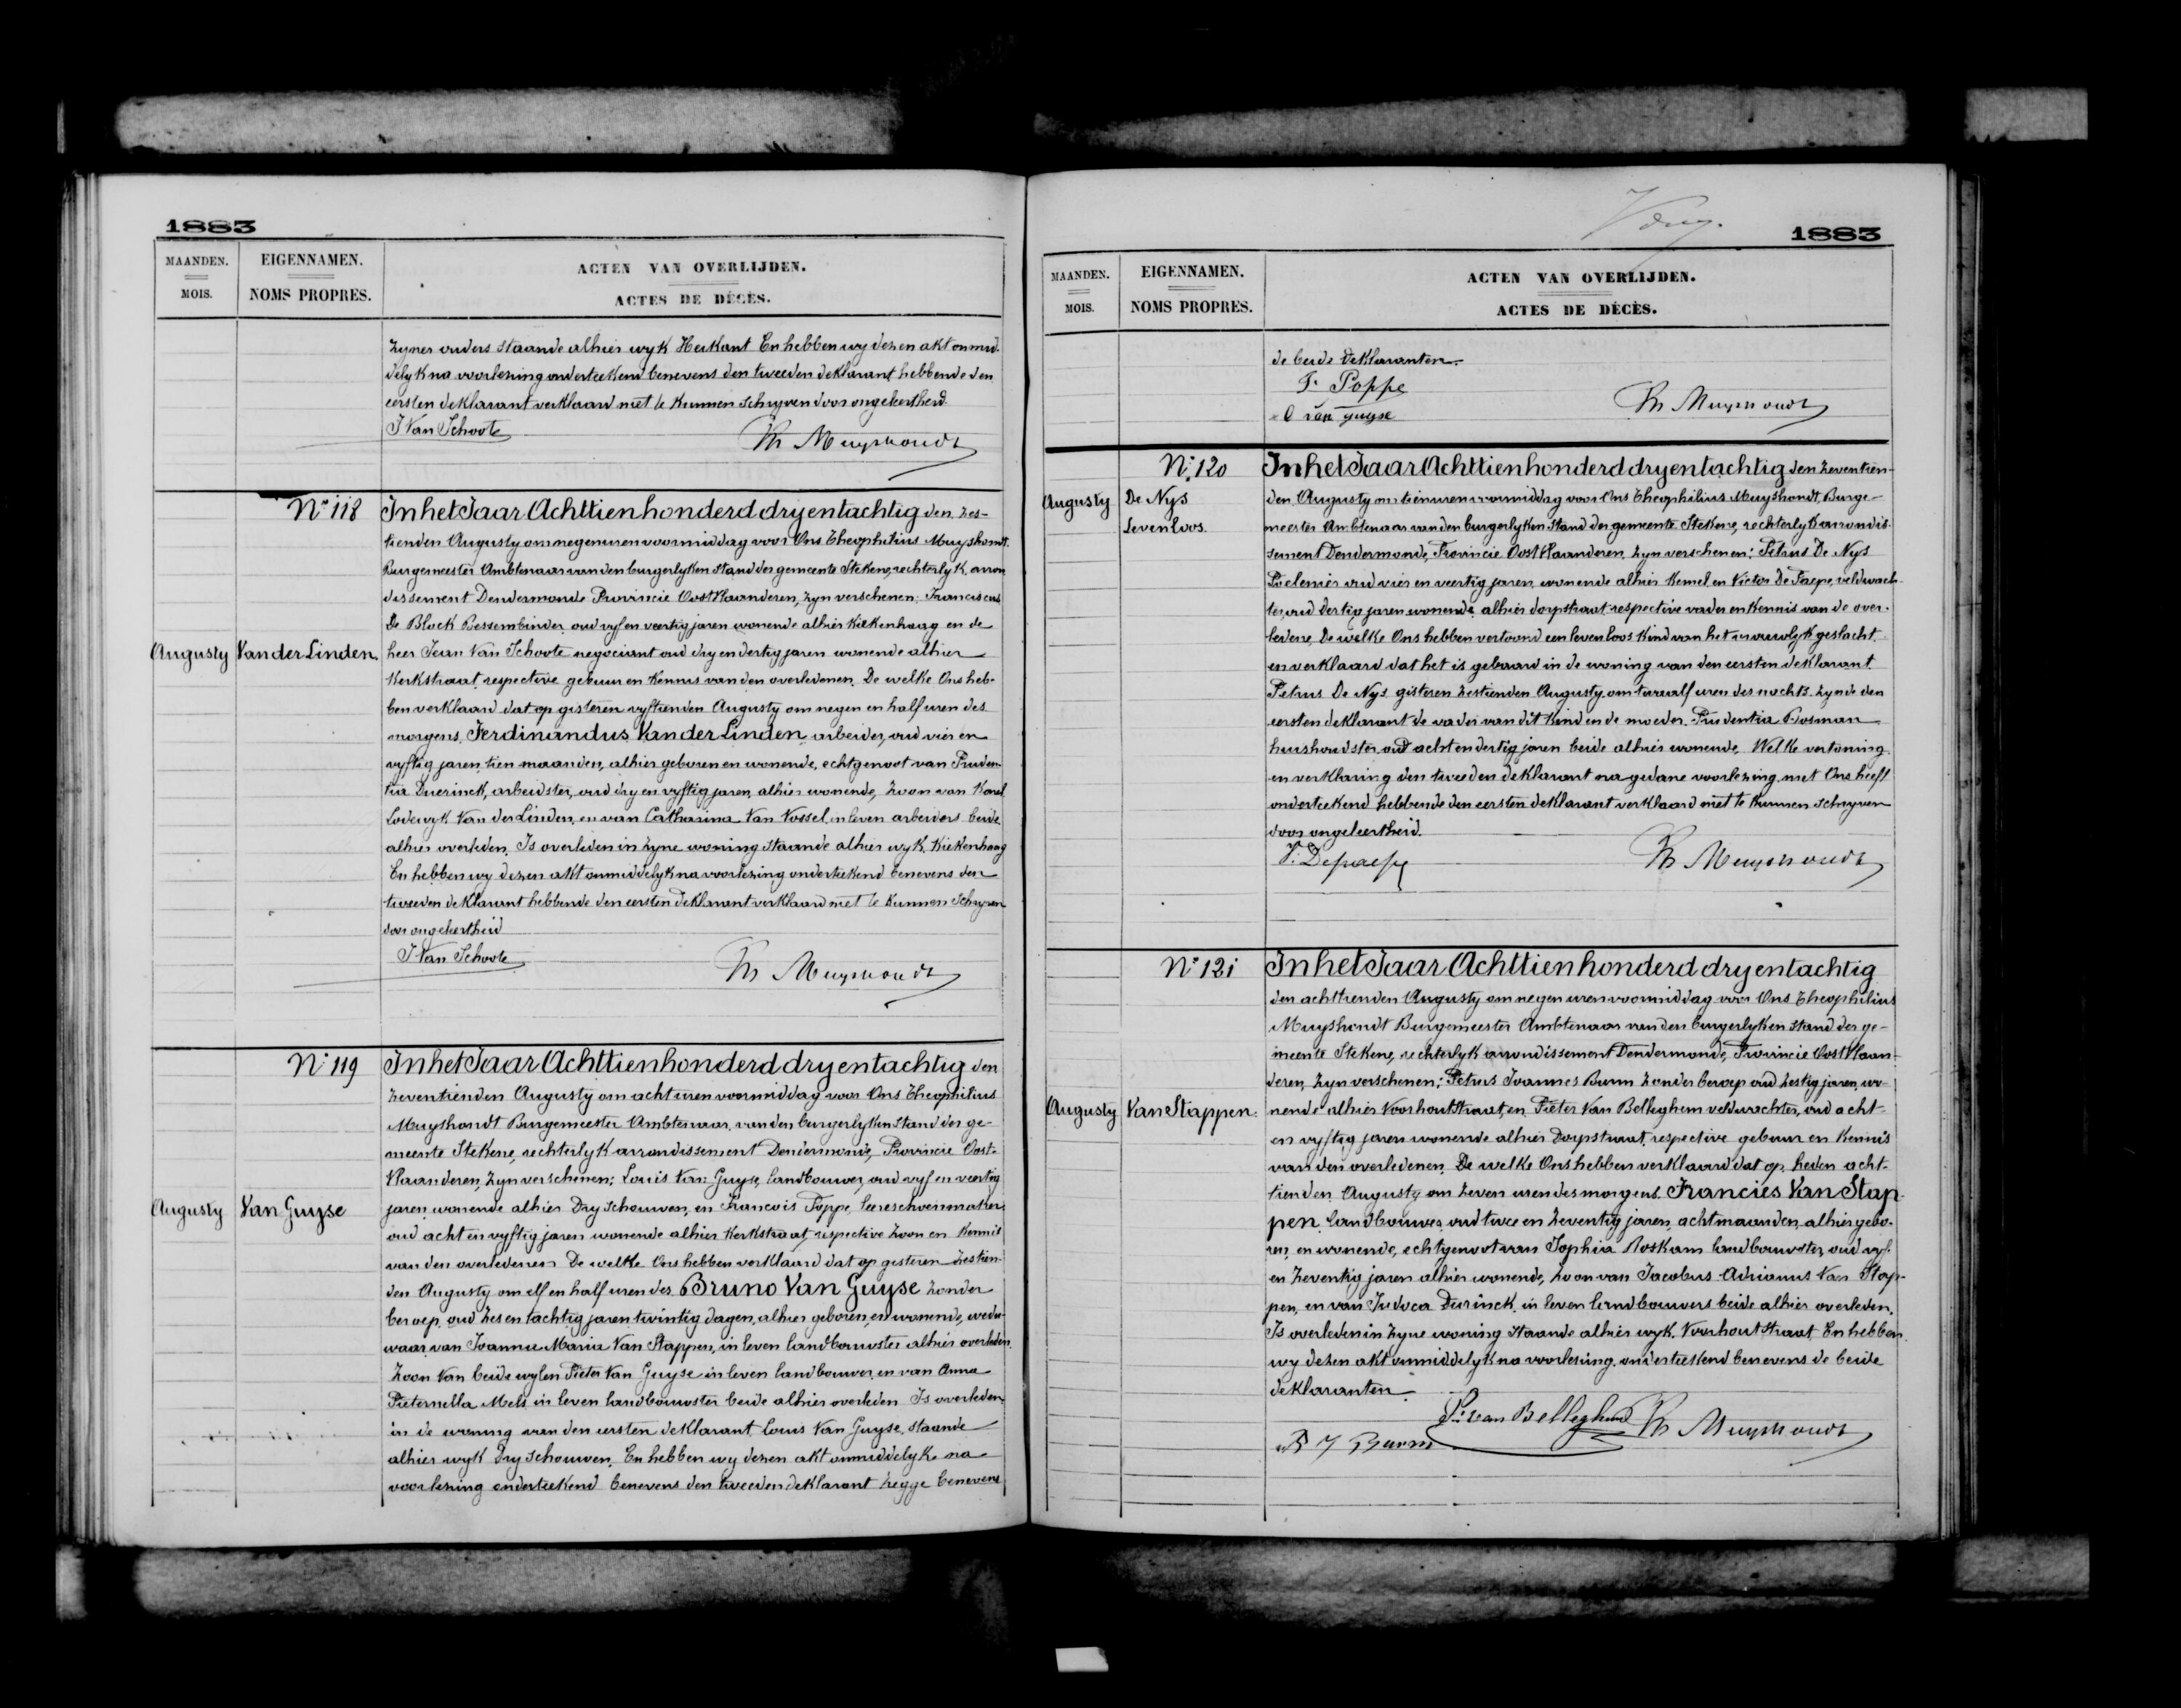 1883
MAANDEN.
MOIS.
EIGENNAMEN.
NOMS PROPRES.
ACTEN VAN OVERLIJDEN.
ACTES DE DÉCÈS.
zyner ouders staande alhier wyk Heikant En hebben wy dezen akt onmid-
delyk na voorlezing onderteekend benevens den tweeden deklarant hebbende den
eersten deklarant verklaard niet te kunnen schryven door ongeleertheid.
J Van Schoote
Th Muyshondt
No 118
In het Jaar Achttienhonderd dryentachtig den zes-
tienden Augusty om negen uren voormiddag voor Ons Theophilius Muyshondt
Burgemeester Ambtenaar van den burgerlyken stand der gemeente Stekene, rechterlyk arron
dissement Dendermonde Provincie OostVlaanderen, zyn verschenen: Franciscus
De Block Bessembinder oud vyf en veertig jaren wonende alhier Kiekenhaag en de
Augusty
Van der Linden.
heer Jean Van Schoote negociant oud dry en dertig jaren wonende alhier
Kerkstraat respective gebuur en kennis van den overledenen. De welke Ons heb-
ben verklaard dat op gisteren vyftienden Augusty om negen en half uren des
morgens. Ferdinandus Van der Linden arbeider, oud vier en
vyftig jaren tien maanden, alhier geboren en wonende, echtgenoot van Pruden-
tia Duerinck, arbeidster, oud dry en vyftig jaren, alhier wonende, zoon van Karel
Lodewyk Van der Linden, en van Catharina Van Vossel, in leven arbeiders beide
alhier overleden. Is overleden in zyne woning staande alhier wyk Kiekenhaag
En hebben wy dezen akt onmiddelyk na voorlezing onderteekend benevens den
tweeden deklarant hebbende den eersten deklarant verklaard niet te kunnen schryven
door ongeleertheid
J Van Schoote
Th Muyshondt
No 119
In het Jaar Achttienhonderd dryentachtig den
zeventienden Augusty om acht uren voormiddag voor Ons Theophilius
Muyshondt Burgemeester Ambtenaar van den burgerlyken stand der ge-
meente Stekene, rechterlyk arrondissement Dendermonde, Provincie Oost-
Vlaanderen, zyn verschenen; Louis Van Guyse, landbouwer, oud vyf en veertig
Augusty
Van Guyse
jaren wonende alhier Dry Schouwen, en Francois Poppe, leerschoenmaker
oud acht en vyftig jaren wonende alhier Kerkstraat, respective zoon en kennis
van den overledenen De welke Ons hebben verklaard dat op gisteren zestien-
den Augusty om elf en half uren des Bruno Van Guyse zonder
beroep oud zes en tachtig jaren twintig dagen, alhier geboren, en wonende, wedu-
waar van Joanna Maria Van Stappen, in leven landbouwster alhier overleden.
Zoon van beide wylen Pieter Van Guyse in leven landbouwer, en van Anna
Pieternella Mels in leven landbouwster beide alhier overleden Is overleden
in de woning van den eersten deklarant Louis Van Guyse, staande
alhier wyk Dry schouwen. En hebben wy dezen akt onmiddelyk na
voorlezing onderteekend benevens den tweeden deklarant zegge benevens
1883
MAANDEN.
MOIS.
EIGENNAMEN.
NOMS PROPRES.
ACTEN VAN OVERLIJDEN.
ACTES DE DÉCÈS.
de beide deklaranten.
F. Poppe
van guyse
Th Muyshondt
No 120
In het Jaar Achttienhonderd dryentachtig den zeventien-
Augusty
De Nys
Levenloos.
den Augusty om tien uren voormiddag voor Ons Theophilius Muyshondt Burge-
meester Ambtenaar van den burgerlyken stand der gemeente Stekene, rechterlyk arrondis-
sement Dendermonde, Provincie OostVlaanderen, zyn verschenen: Petrus De Nys
oud vier en veertig jaren, wonende alhier Kemel en Victor De Paepe, veldwach-
ter, oud dertig jaren wonende alhier dorpstraat respective vader en kennis van de over-
ledene, De welke Ons hebben vertoond een levenloos kind van het vrouwlyk geslacht
en verklaard dat het is gebaard in de woning van den eersten deklarant
Petrus De Nys gisteren zestienden Augusty om twaalf uren des nachts zynde den
eersten deklarant de vader van dit kind en de moeder Prudentia Bosman
huishoudster oud acht en dertig jaren beide alhier wonende. Welke vertooning
en verklaring den tweeden deklarant na gedane voorlezing met Ons heeft
onderteekend hebbende den eersten deklarant verklaard niet te kunnen schryven
door ongeleertheid.
V. Depaepe
Th Muyshondt
No 121
In het Jaar Achttienhonderd dryentachtig
den achttienden Augusty om negen uren voormiddag voor Ons Theophilius
Muyshondt Burgemeester Ambtenaar van den burgerlyken stand der ge-
meente Stekene, rechterlyk arrondissement Dendermonde, Provincie OostVlaan-
deren, zyn verschenen; Petrus Joannes Burm zonder beroep oud zestig jaren, wo-
Augusty
Van Stappen.
nende alhier Voorhoutstraat, en Pieter Van Belleghem veldwachter, oud acht
en vyftig jaren wonende alhier Dorpstraat, respective gebuur en kennis
van den overledenen. De welke Ons hebben verklaard dat op heden acht-
tienden Augusty om zeven uren des morgens. Francies Van Stap-
pen landbouwer oud twee en zeventig jaren, acht maanden, alhier gebo-
ren, en wonende, echtgenoot van Sophia Roskam landbouwster, oud vyf-
en zeventig jaren alhier wonende, zoon van Jacobus Adrianus Van Stap-
pen, en van Judoca Durinck, in leven landbouwers beide alhier overleden.
Is overleden in zyne woning staande alhier wyk Voorhoutstraat En hebben
wy dezen akt onmiddelyk na voorlezing onderteekend benevens de beide
deklaranten.
P. van Belleghem
Th Muyshondt
P J Burm